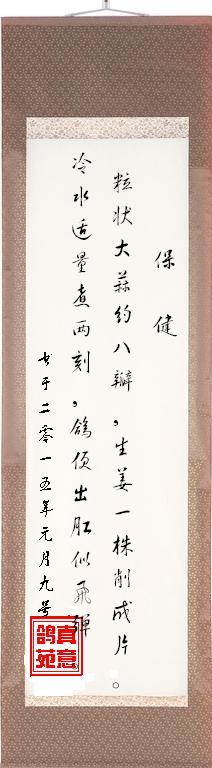 保健
粒状大蒜约八瓣，生姜一株削成片。
冷水适量煮两刻，鸽便出肛似飞弹。
书于二零一五年元月九号
真意鸽苑